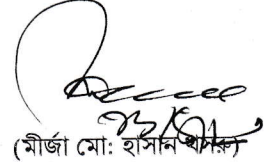 (মীর্জা মো: হাসান খসরু)